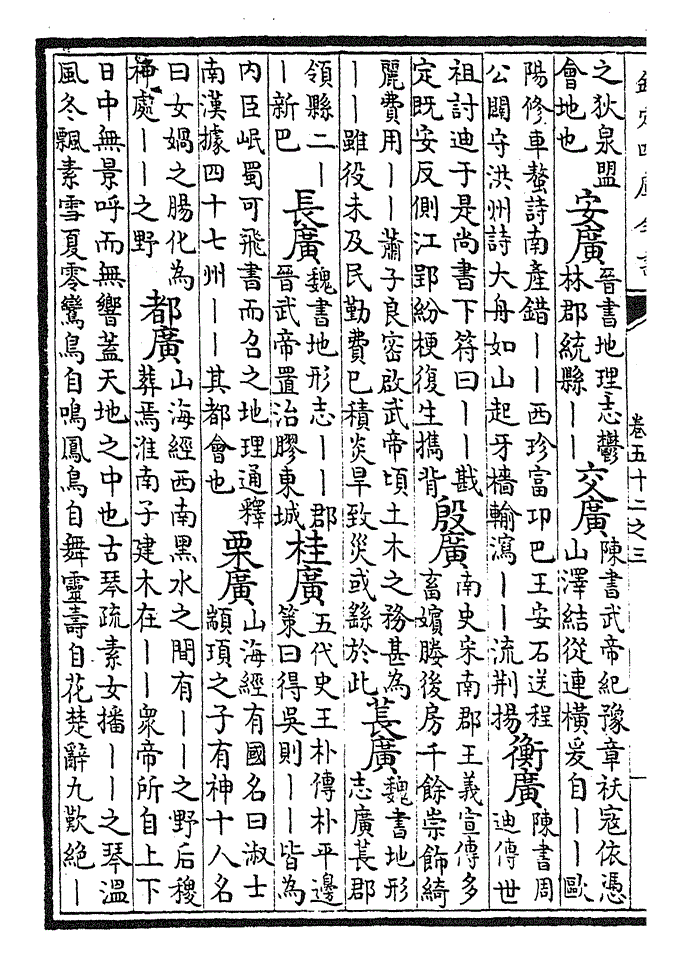 卷五十二之三
之狄泉盟
會地也
安廣
晉書地理志鬱
林郡統縣丨丨
交廣
陳書武帝紀豫章祅寇依憑
山澤結從連橫爰自丨丨歐
陽修車螯詩南產錯丨丨西珍富卭巴王安石送程
公闢守洪州詩大舟如山起牙檣輸瀉丨丨流荆揚
衡廣
陳書周
迪傳世
祖討迪于是尚書下符曰丨丨戡
定既安反側江郢紛梗復生攜背
殷廣
南史宋南郡王義宣傳多
畜嬪媵後房千餘崇飾綺
麗費用丨丨蕭子良密啟武帝頃土木之務甚為
丨丨雖役未及民勤費已積炎旱致災或繇於此
萇廣
魏書地形
志廣萇郡
領縣二丨
丨新巴
長廣
魏書地形志丨丨郡
晉武帝置治膠東城
桂廣
五代史王朴傳朴平邊
策曰得吳則丨丨皆為
内臣岷蜀可飛書而召之地理通釋
南漢據四十七州丨丨其都會也
栗廣
山海經有國名曰淑士
顓頊之子有神十人名
曰女媧之腸化為
神處丨丨之野
都廣
山海經西南黑水之閒有丨丨之野后稷
葬焉淮南子建木在丨丨衆帝所自上下
日中無景呼而無響蓋天地之中也古琴疏素女播丨丨之琴溫
風冬飄素雪夏零鸞鳥自鳴鳳鳥自舞靈壽自花楚辭九歎絶丨